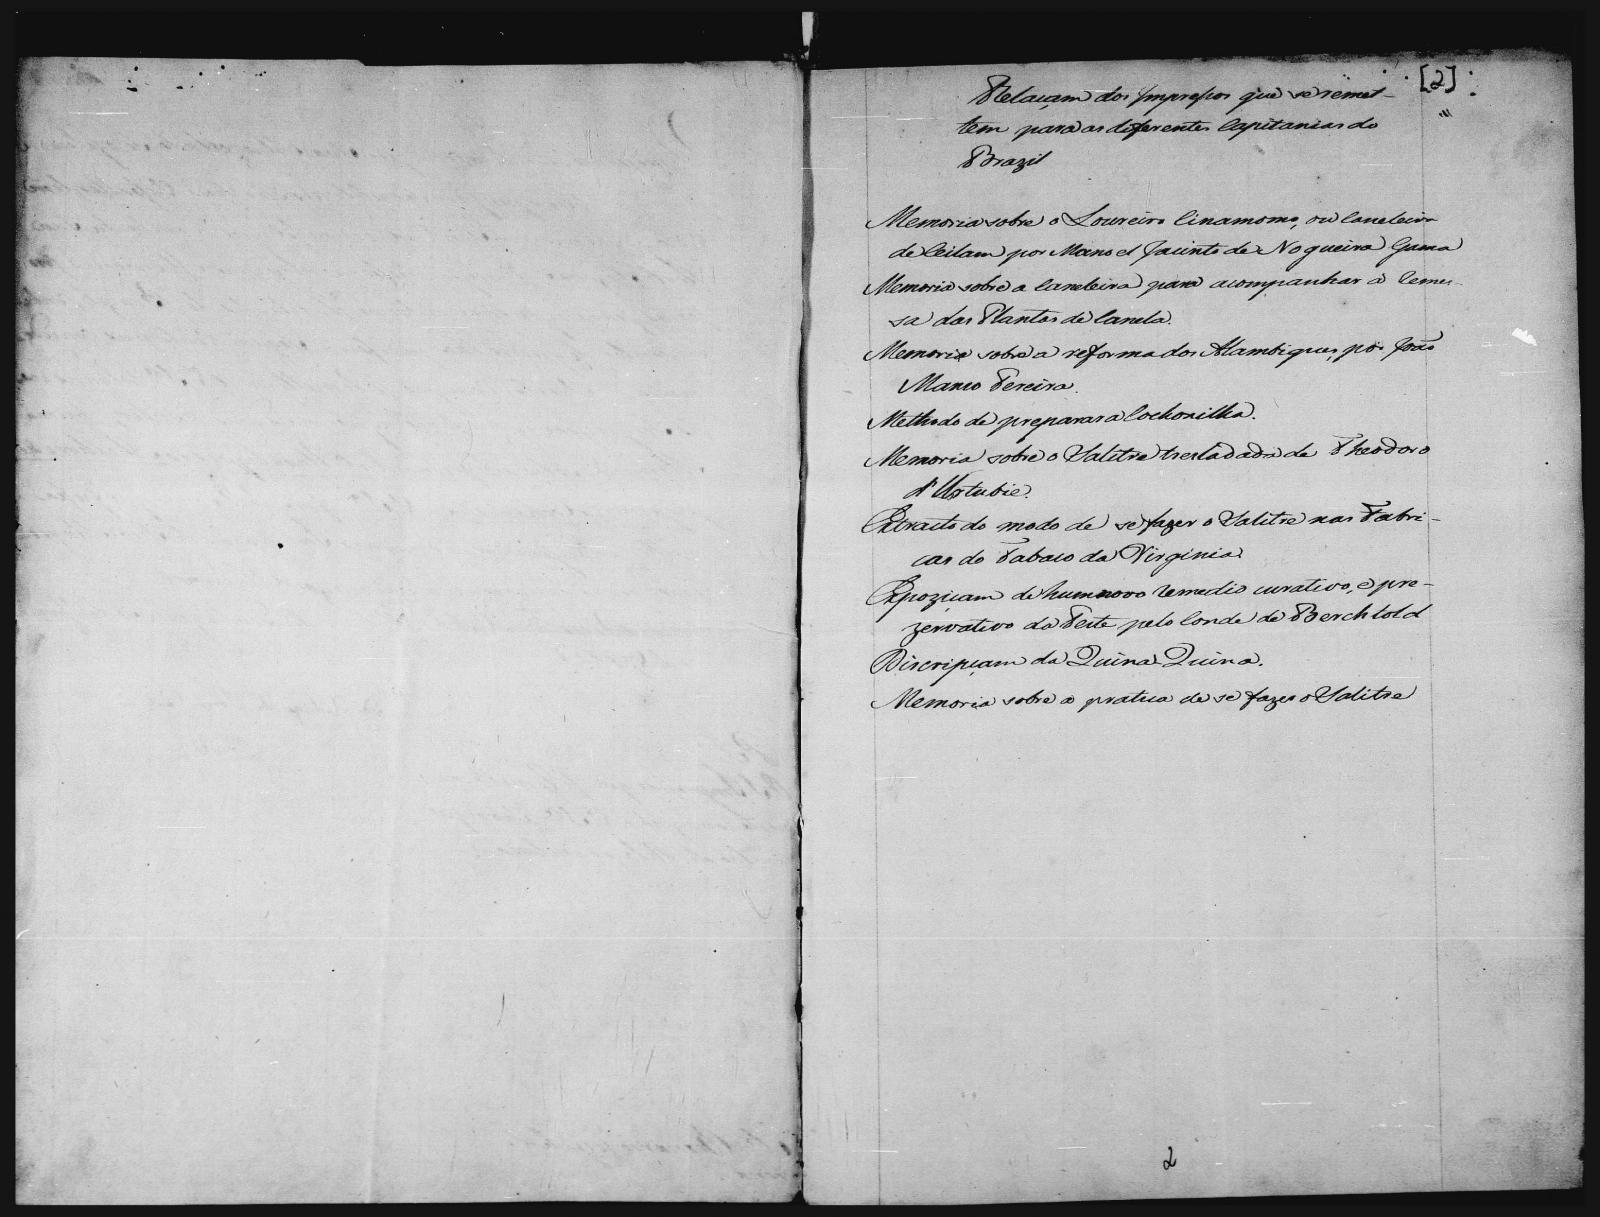 [2]
Relaçam dos Impressos que se remet-
tem para as diferentes Capitanias do
Brazil
Memoria sobre o Loureiro Cinamomo, ou Caneleira
de Ceilam por Manoel Jacinto de Nogueira Gama
Memoria sobre a Caneleira para acompanhar a Remes-
sa das Plantas de Canela.
Memoria sobre a reforma dos Alambiques, por João
Manso Pereira.
Methodo de preparar a Cochonilha.
Memoria sobre o Salitre tresladada de Theodoro
d'Urtubie.
Extracto do modo de se fazer o Salitre nas Fabri-
cas do Tabaco da Virginia.
Expoziçam de hum novo remedio curativo, e pre-
zervativo da Peste pelo Conde de Berchtold
Discripçam da Quina Quina.
Memoria sobre a pratica de se fazer o Salitre
2